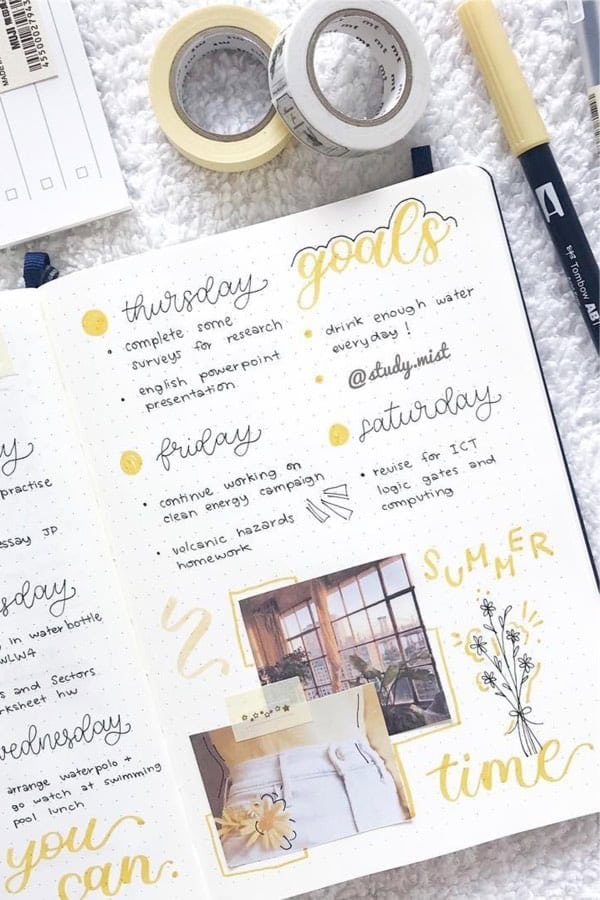 MUJ
MADE IN
4550002793
mt
mt
Tombow AB
y
practise
essay JP
sday
in waterbottle
WLW4
s and Sectors
worksheet hw
wednesday
arrange waterpolo +
go watch at swimming
pool lunch
you
can.
thursday
• complete some
surveys for research
• english powerpoint
presentation
friday
• continue working on
clean energy campaign
• volcanic hazards
homework
goals
• drink enough water
everyday !
• @study.mist
saturday
• revise for ICT
logic gates and
computing
SUMMER
time